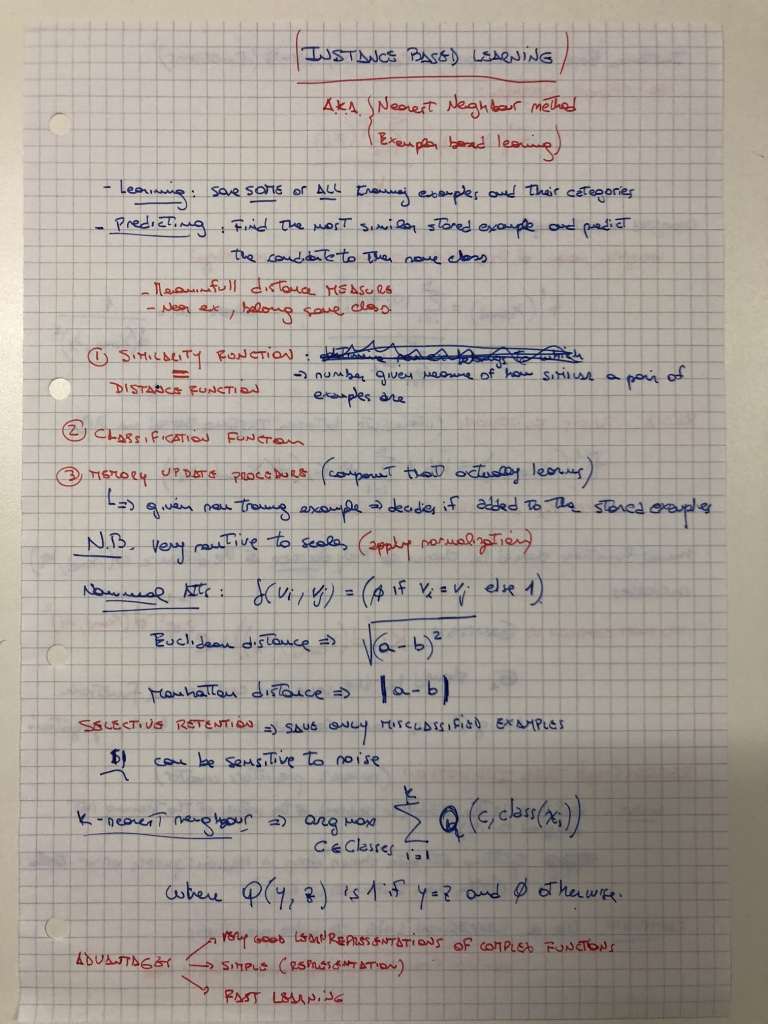 INSTANCE BASED LEARNING
A.K.A. { Nearest Neighbour method
( Exemplar based learning )
- Learning : save SOME or ALL training examples and their categories
- Predicting : Find the most similar stored example and predict
the candidate to the same class
- Meaninfull distance MEASURE
- Near ex, belong same class.
① SIMILARITY FUNCTION :
=
DISTANCE FUNCTION
=> number given measure of how similar a pair of
examples are
② CLASSIFICATION FUNCTION
③ MEMORY UPDATE PROCEDURE (component that actually learns)
L=> given new training example => decides if added to the stored examples
N.B. Very sensitive to scales (apply normalization)
Nominal Atts : f(vi, vj) = (ø if vi = vj else 1)
Euclidean distance => √(a-b)²
Manhattan distance => |a-b|
SELECTIVE RETENTION => SAVE ONLY MISCLASSIFIED EXAMPLES
can be sensitive to noise
K-nearest neighbour => arg max C∈Classes ∑ i=1 K Q (c, class(xi))
where Q(y, z) is 1 if y=z and ø otherwise.
ADVANTAGES -> VERY GOOD LEARN REPRESENTATIONS OF COMPLEX FUNCTIONS
-> SIMPLE (REPRESENTATION)
-> FAST LEARNING